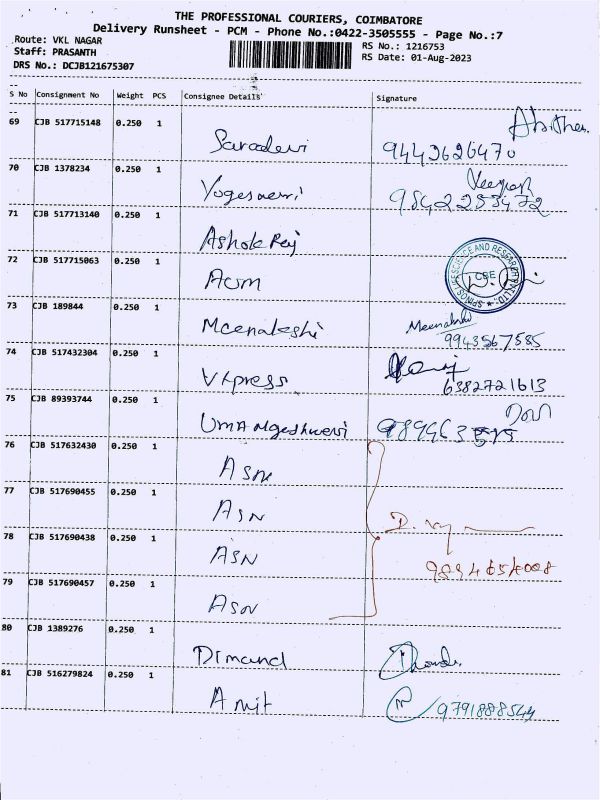 THE PROFESSIONAL COURIERS, COIMBATORE
Delivery Runsheet - PCM - Phone No.:0422-3505555 - Page No.:7
Route: VKL NAGAR
RS No.: 1216753
Staff: PRASANTH
RS Date: 01-Aug-2023
DRS No.: DCJB121675307
S No Consignment No Weight PCS Consignee Details Signature
69 CJB 517715148 0.250 1 Saradevi 9443626470
70 CJB 1378234 0.250 1 9842253472
71 CJB 517713140 0.250 1 Ashok Raj
72 CJB 517715063 0.250 1
CBE
73 CJB 189844 0.250 1 Meenakshi Meenakshi
9943567585
74 CJB 517432304 0.250 1 Vxpress
6382721613
75 CJB 89393744 0.250 1 Uma
76 CJB 517632430 0.250 1 ASN
77 CJB 517690455 0.250 1 ASN
78 CJB 517690438 0.250 1 ASN
79 CJB 517690457 0.250 1 ASN
80 CJB 1389276 0.250 1 Dimand
81 CJB 516279824 0.250 1 Amit 9791888544